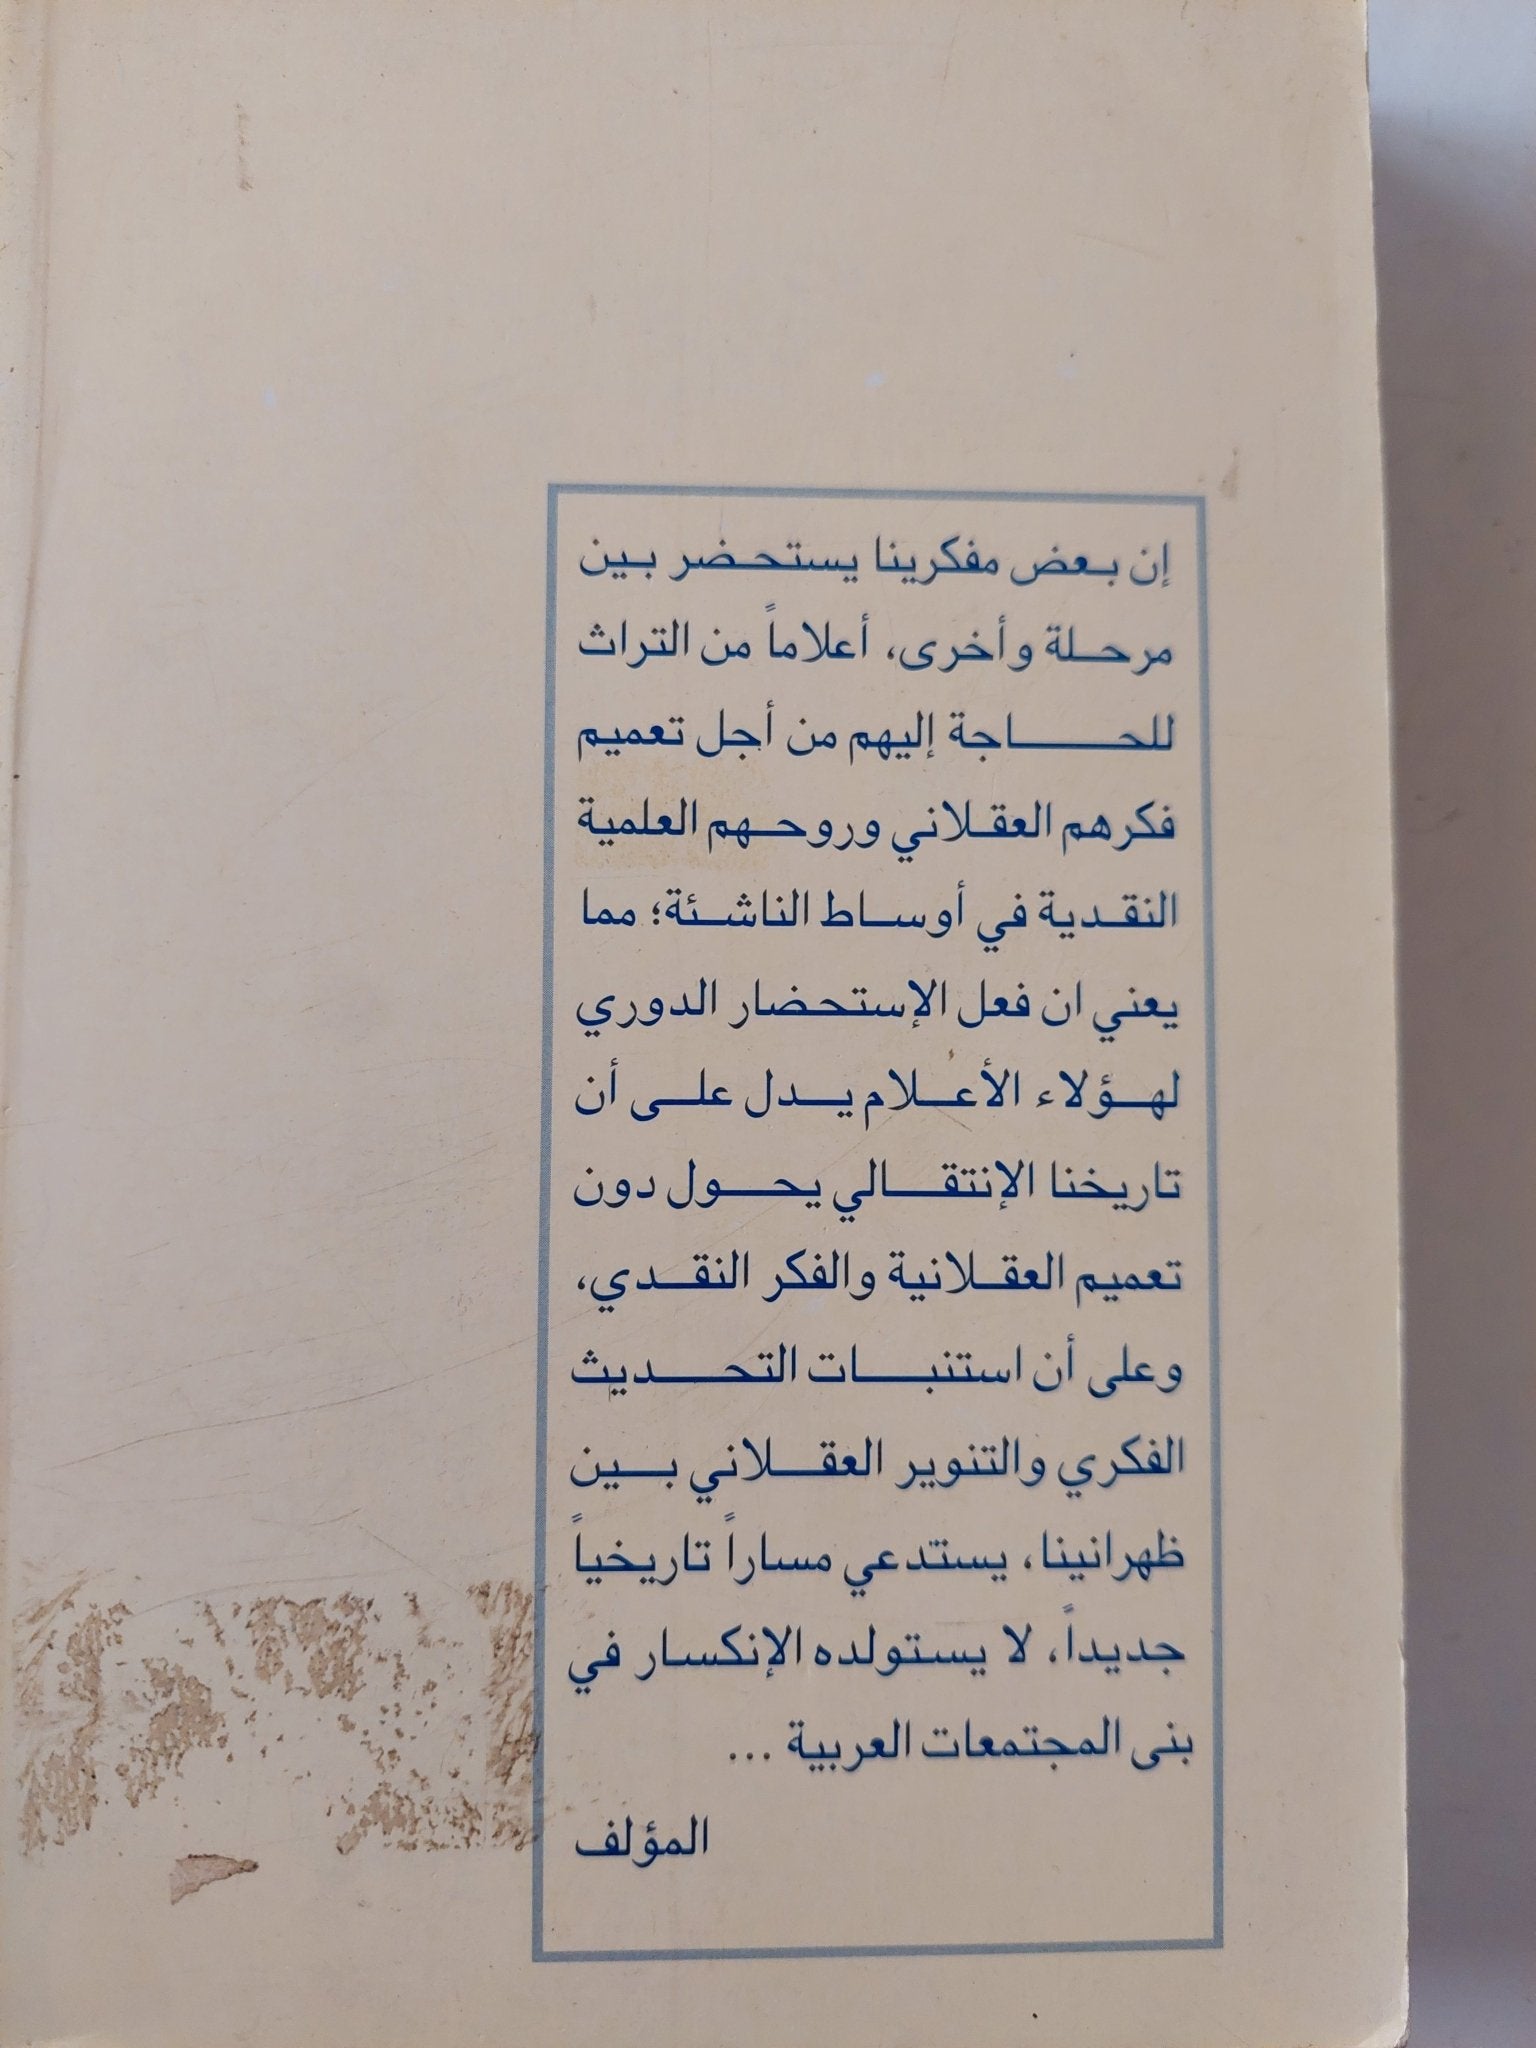 إن بعض مفكرينا يستحضر بين
مرحلة وأخرى، أعلاماً من التراث
للحاجة إليهم من أجل تعميم
فكرهم العقلاني وروحهم العلمية
النقدية في أوساط الناشئة؛ مما
يعني ان فعل الإستحضار الدوري
لهؤلاء الأعلام يدل على أن
تاريخنا الإنتقالي يحول دون
تعميم العقلانية والفكر النقدي،
وعلى أن استنبات التحديث
الفكري والتنوير العقلاني بين
ظهرانينا، يستدعي مساراً تاريخياً
جديداً، لا يستولده الإنكسار في
بنى المجتمعات العربية ...
المؤلف